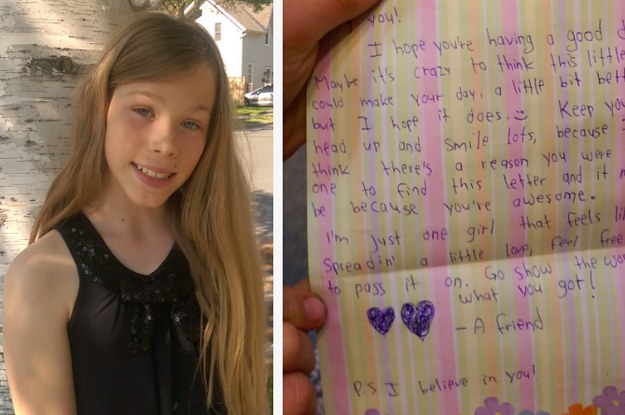 you!
I hope you're having a good d
Maybe it's crazy to think this little
could make your day, a little bit bett
but I hope it does. Keep you
head up and smile lots, because I
think there's a reason you were
one to find this letter and it m
be because you're awesome.
I'm just one girl that feels li
Spreadin' a little love, feel free
to pass it on. Go show the wor
what you got!
- A friend
P.S I believe in you!